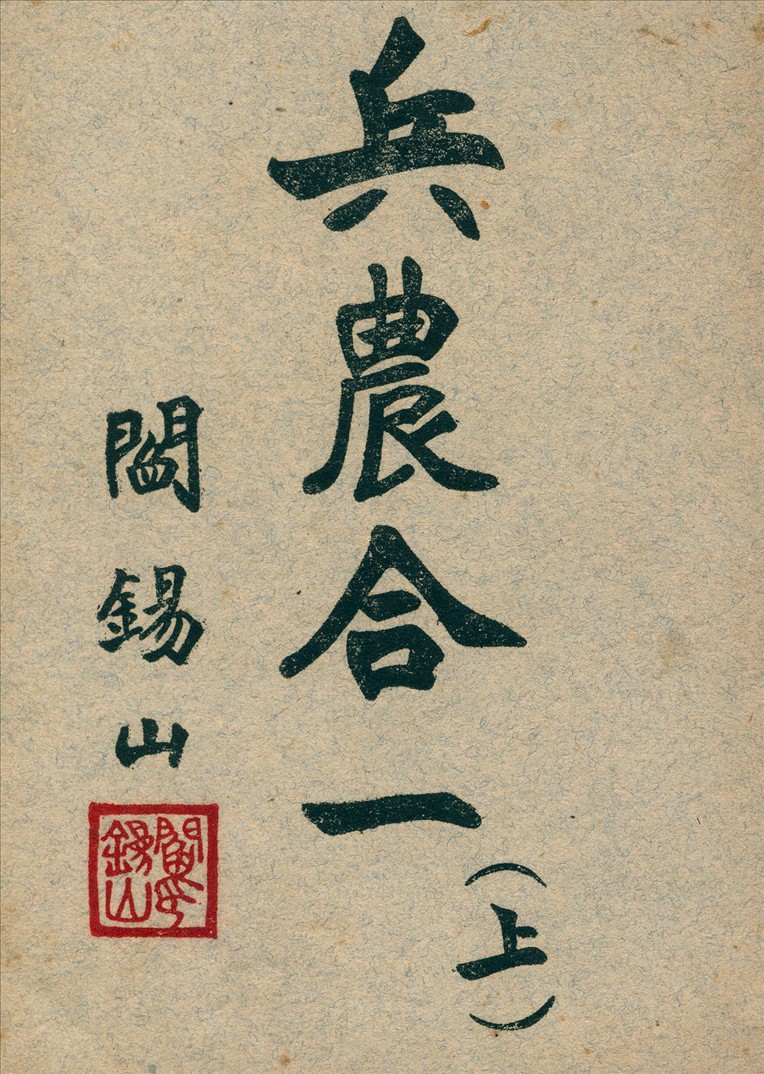 兵農合一(上)
閻錫山
閻印
錫山